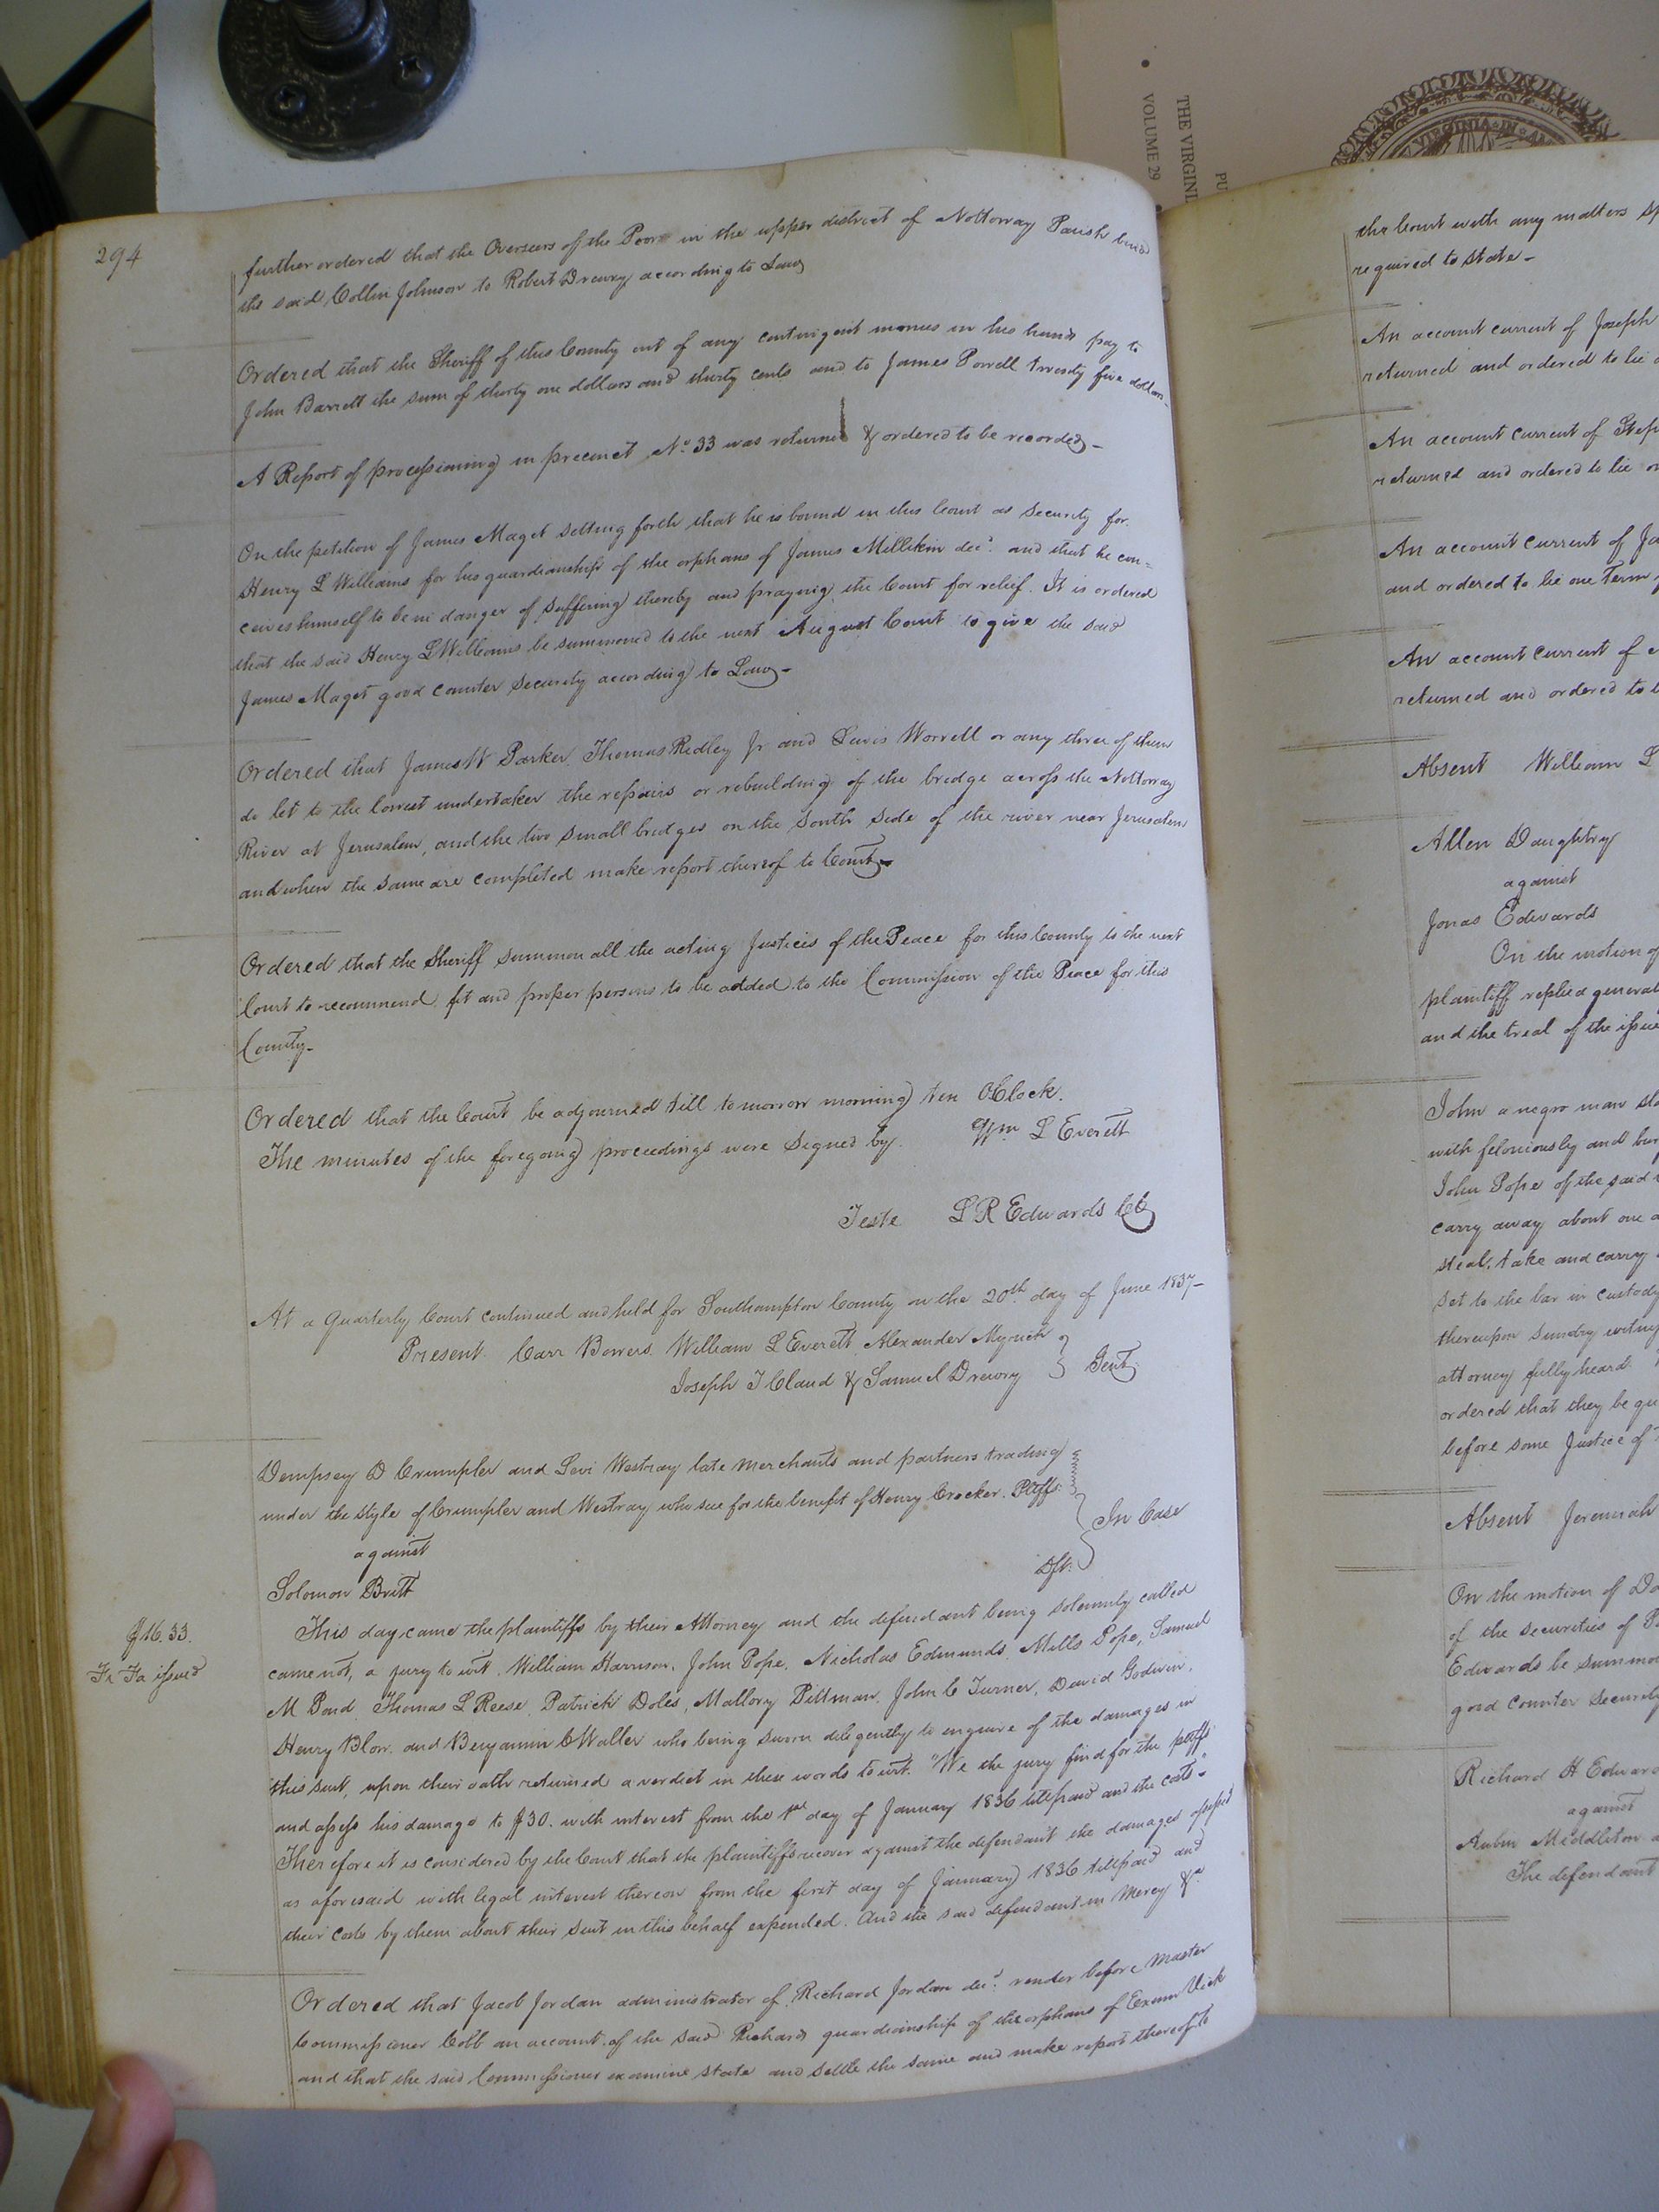 294
further ordered that the Overseers of the Poor in the upper district of Nottoway Parish bind
the said Collin Johnson to Robert Drewry according to Law
Ordered that the Sheriff of this County out of any contingent monies in his hands pay to
John Barrett the sum of thirty one dollars and thirty cents and to James Powell twenty five dollars.
A Report of processioning in precinct No. 33 was returned & ordered to be recorded -
On the petition of James Maget setting forth that he is bound in this Court as security for
Henry L Williams for his guardianship of the orphans of James Millikin decd. and that he con=
ceives himself to be in danger of suffering thereby and praying the Court for relief. It is ordered
that the said Henry L Williams be summoned to the next August Court to give the said
James Maget good counter security according to Law -
Ordered that James W Parker, Thomas Ridley Jr. and Lewis Worrell or any three of them
do let to the lowest undertaker the repairs or rebuilding of the bridge across the Nottoway
River at Jerusalem, and the two small bridges on the South side of the river near Jerusalem
and when the same are completed make report thereof to Court -
Ordered that the Sheriff summon all the acting Justices of the Peace for this County to the next
Court to recommend fit and proper persons to be added to the Commission of the Peace for this
County -
Ordered that the Court be adjourned till tomorrow morning ten OClock.
The minutes of the foregoing proceedings were signed by. Wm L Everett
Teste L R Edwards
At a Quarterly Court continued and held for Southampton County on the 20th. day of June 1837 -
Present. Carr Bowers William L Everett Alexander Myrick
Joseph T Claud & Samuel Drewry } Gent.
Dempsey D Crumpler and Levi Westray late merchants and partners trading
under the style of Crumpler and Westray who sue for the benefit of Henry Crocker. Pltffs.
against } In Case
Solomon Britt Dft.
$16.33.
Fi Fa issued
This day came the plaintiffs by their Attorney and the defendant being solemnly called
came not, a jury to wit. William Harrison, John Pope, Nicholas Edmunds, Mills Pope, Samuel
M Pond, Thomas L Reese, Patrick Doles, Mallory Pittman, John C Turner, David Godwin,
Henry Blow, and Benjamin C Waller who being sworn diligently to enquire of the damages in
this suit, upon their oath returned a verdict in these words to wit. "We the jury find for the pltffs.
and assess his damage to $30. with interest from the 1st day of January 1836 till paid and the costs."
Therefore it is considered by the Court that the plaintiffs recover against the defendant the damages assessed
as aforesaid with legal interest thereon from the first day of January 1836 till paid and
their costs by them about their suit in this behalf expended. And the said defendant in Mercy &c
Ordered that Jacob Jordan administrator of Richard Jordan decd. render before Master
Commissioner Cobb an account of the said Richards guardianship of the orphans of Exum Vick
and that the said Commissioner examine state and settle the same and make report thereof to
THE VIRGINI
VOLUME 29
PU
VIRGINIA
the Court with any matters sp
required to state -
An account current of Joseph
returned and ordered to lie
An account current of Step
returned and ordered to lie on
An account current of Ja
and ordered to lie one Term
An account current of
returned and ordered to
Absent William L
Allen Daughtry
against
Jonas Edwards
On the motion of
plaintiff replied general
and the trial of the issue
John a negro man sla
with feloniously and bur
John Pope of the said
carry away about one
steal, take and carry
set to the bar in custody
thereupon sundry witnes
attorney fully heard.
ordered that they be qu
before some Justice of
Absent Jeremiah
On the motion of Da
of the securities of
Edwards be summo
good counter security
Richard H Edwar
against
Middleton
The defendant